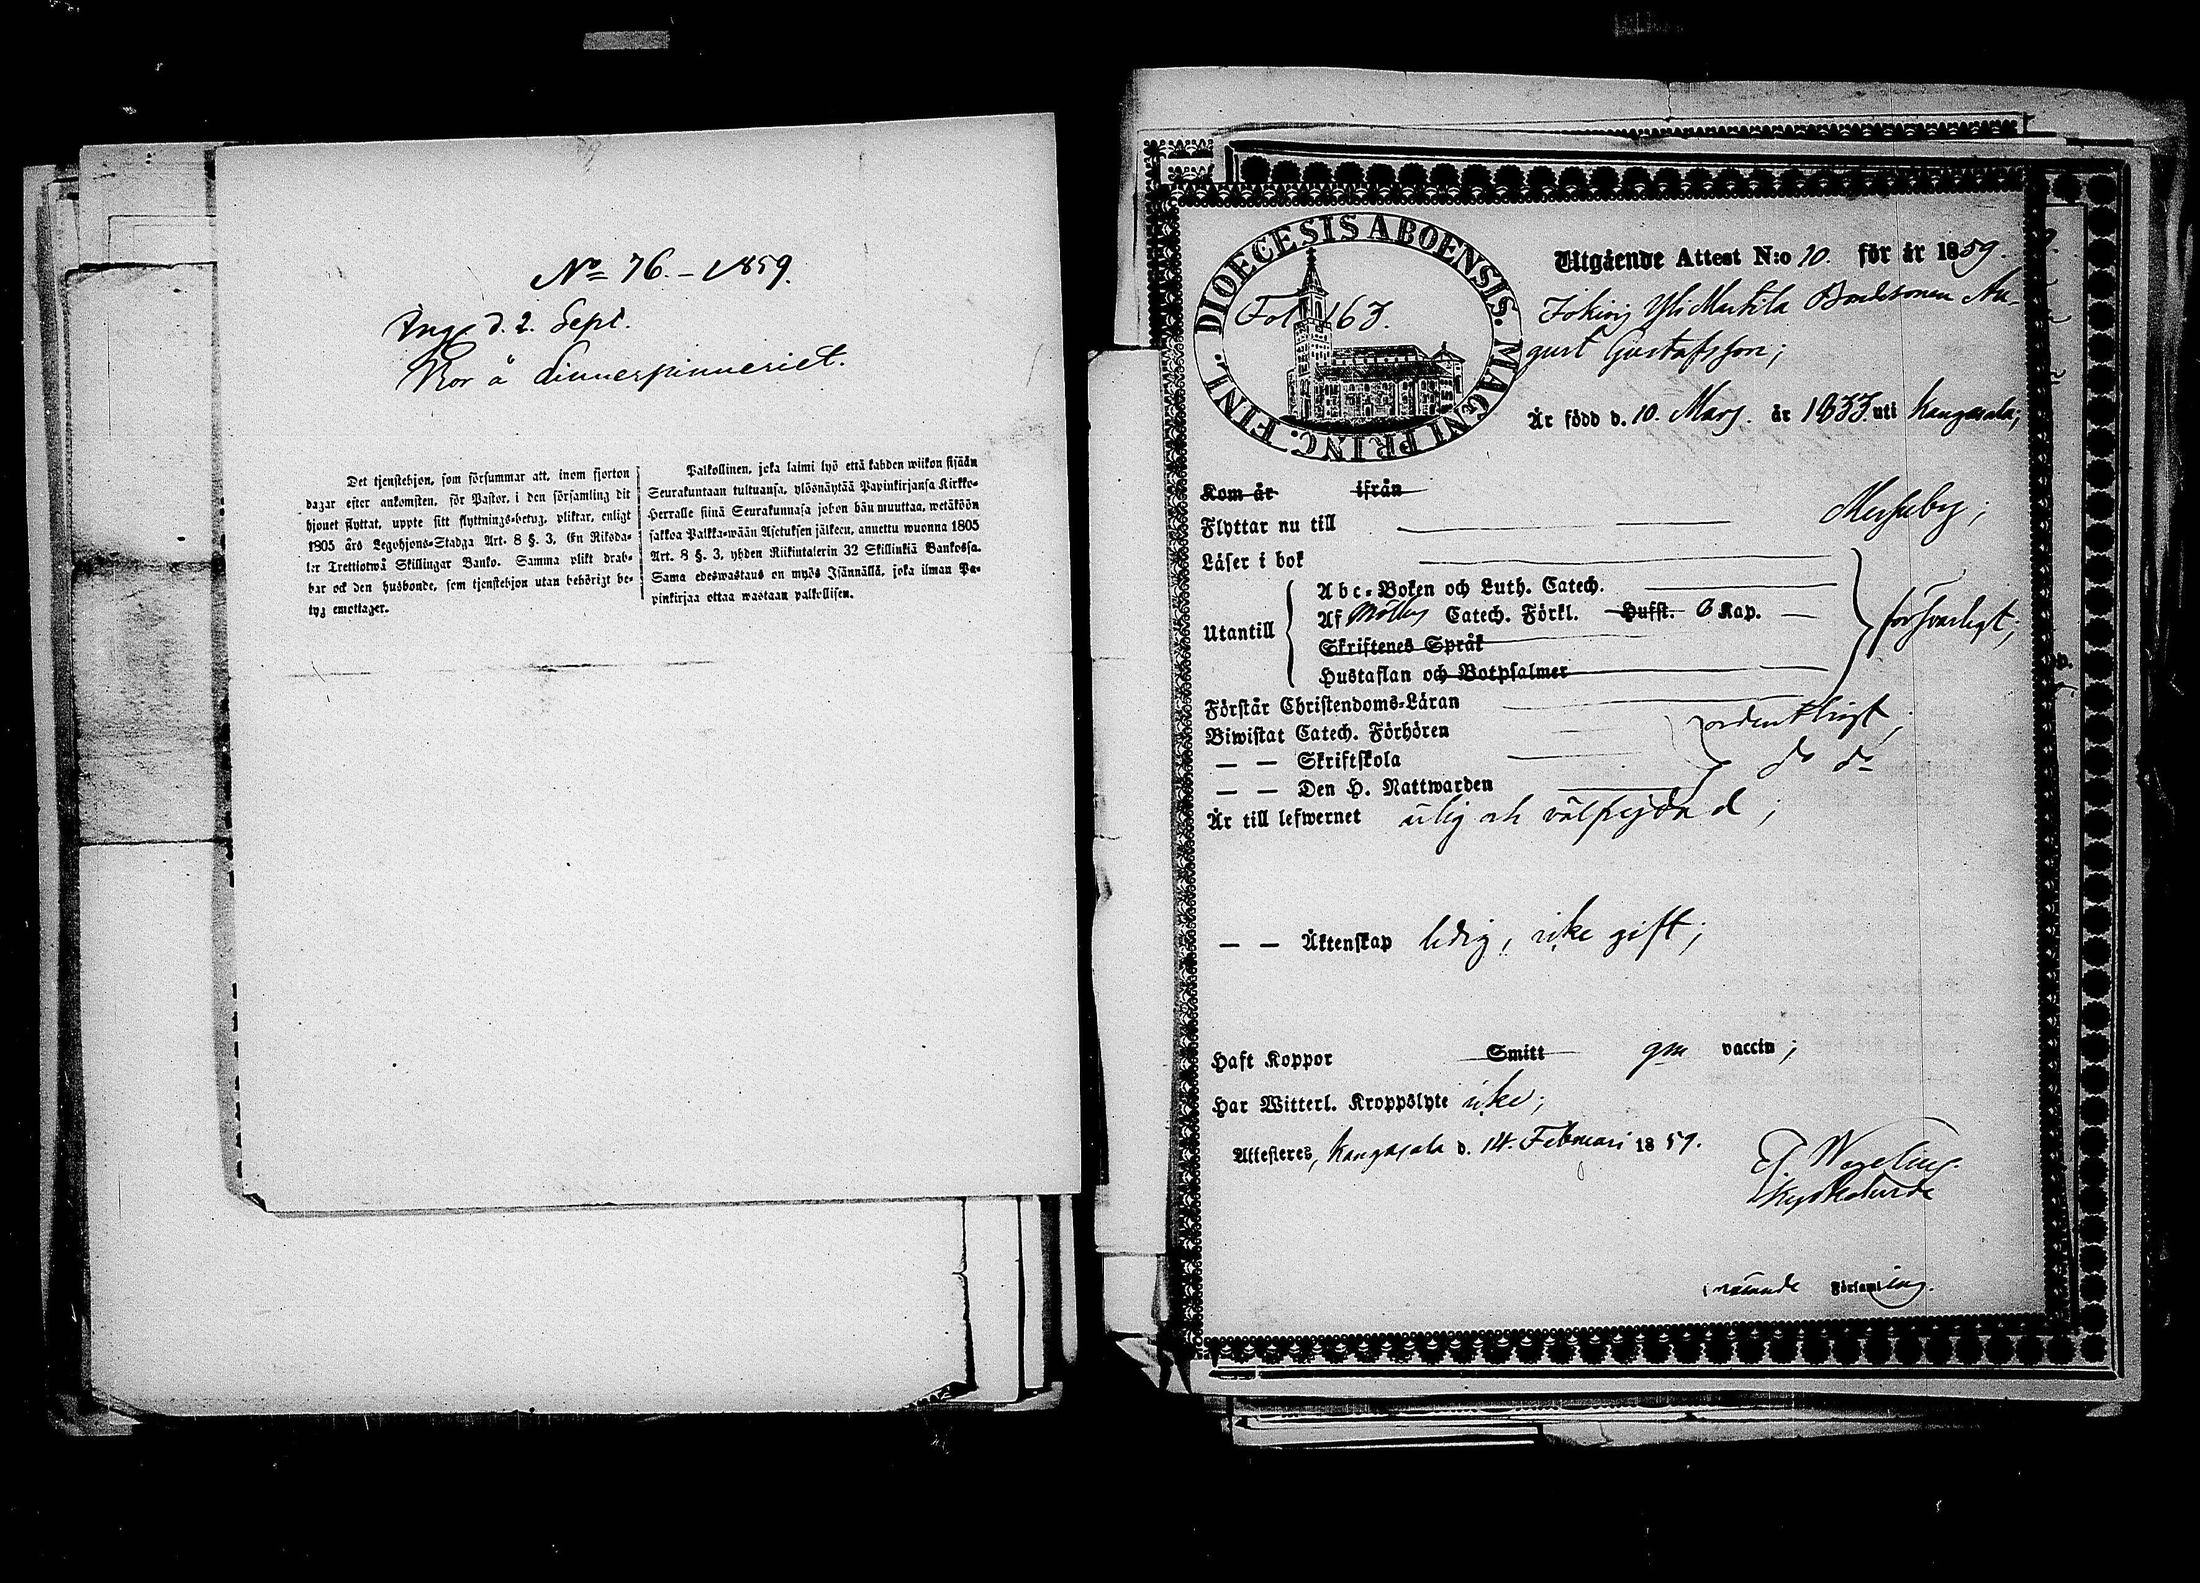 No 76. – 1859.
Ing. d. 2. Sept.
Bor å Linnespinneriet.
Det tjenstehjon, som försummar att, inom fjorton
dagar efter ankomsten, för Pastor, i den församling dit
hjonet flyttat, uppte sitt flyttnings-betyg, pliktar, enligt
1805 års Legohjons-Stadga Art. 8 §. 3, En Riksda-
ler Trettiotwå Skillingar Banko. Samma plikt drab-
bar ock den husbonde, som tjenstehjon utan behörigt be-
tyg emottager.
Palkollinen, joka laimi lyö että kahden wiikon sisään
Seurakuntaan tultuansa, ylösnäytää Papinkirjansa Kirkko-
Herralle siinä Seurakunnasa johon hän muuttaa, wetäköön
sakkoa Palkka-wään Asetuksen jälkeen, annettu wuonna 1805
Art. 8 §. 3, yhden Riikintalerin 32 Skillinkiä Bankossa.
Sama edeswastaus on myös Isännällä, joka ilman Pa-
pinkirjaa ottaa wastaan palkollisen.
DIOECESIS ABOENSIS. MAGNI PRINC. FINL.
Fol 163.
Utgående Attest N:o 10 för år 1859.
Jokioij Yli Markila Bondesonen Au-
gust Gustafsson;
Är född d. 10. Mars. år 1833. uti Kangasala;
Kom år ifrån
Flyttar nu till Messuby;
Läser i bok
Utantill
Abc-Boken och Luth. Catech.
Af Möllers Catech. Förkl. Hufst. 6 Kap.
Skriftenes Språk
Hustaflan och Botpsalmer
försvarligt;
Förstår Christendoms-Läran
Biwistat Catech. Förhören ordentligt;
— — Skriftskola do do
— — Den H. Nattwarden
Är till lefwernet ärlig och välfrejdad;
— — Äktenskap ledig, icke gift;
Haft Koppor Smitt gm vaccin;
Har Witterl. Kroppslyte icke;
Attesteres, Kangasala d. 14. Februari 1859.
Kyrkoherde
Församling.